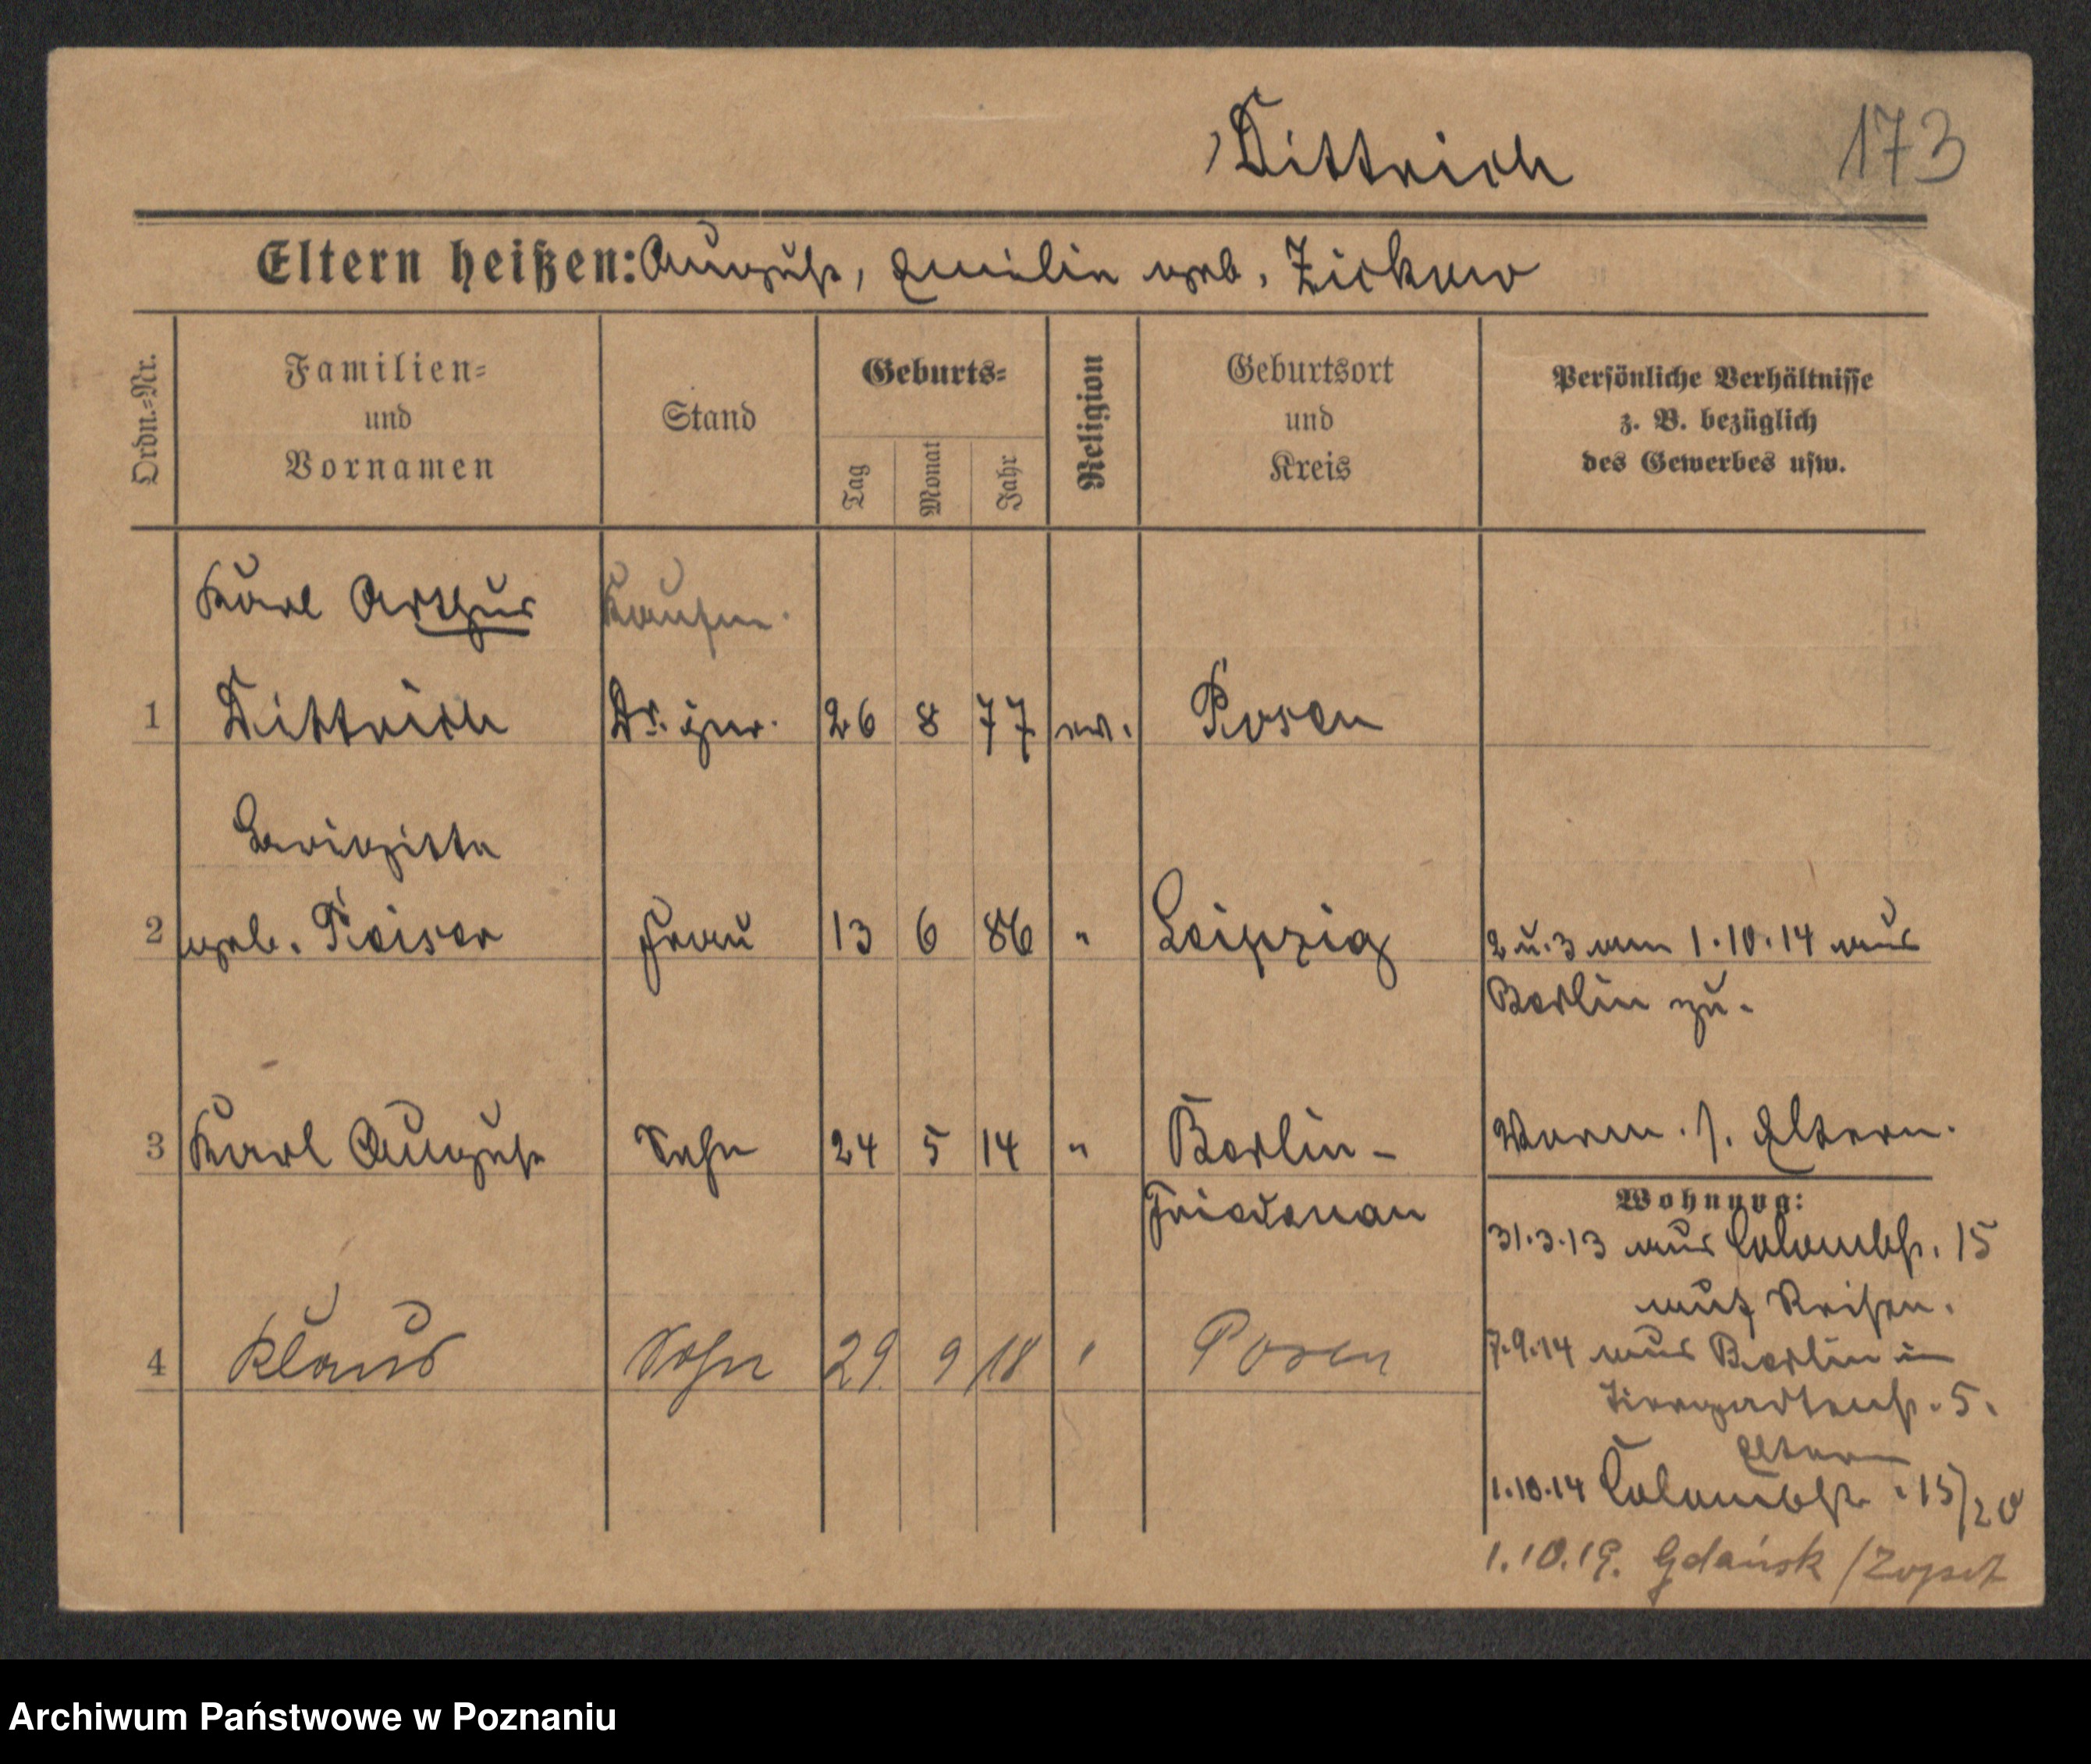 Dittrich
173
Eltern heißen: August, Emilie geb. Zickow
Ordn.-Nr.
Familien-
und
Vornamen
Stand
Geburts-
Tag
Monat
Jahr
Religion
Geburtsort
und
Kreis
Persönliche Verhältnisse
z. B. bezüglich
des Gewerbes usw.
Karl Arthur Kaufm.
1 Dittrich Dr. jur. 26 8 77 ev. Posen
Brigitte
2 geb. Peiser Frau 13 6 86 " Leipzig 2 u. 3 am 1.10.14 aus
Berlin zu.
3 Karl August Sohn 24 5 14 " Berlin- Verm. s. Eltern.
Friedenau
Wohnung:
31.3.13 aus Colombstr. 15
auf Reisen.
4 Klaus Sohn 29. 9 18 " Posen
7.9.14 aus Berlin in
Tiergartenstr. 5.
Eltern
1.10.14 Colombstr. 15/20
1.10.19. Gdańsk / Zopot
Archiwum Państwowe w Poznaniu